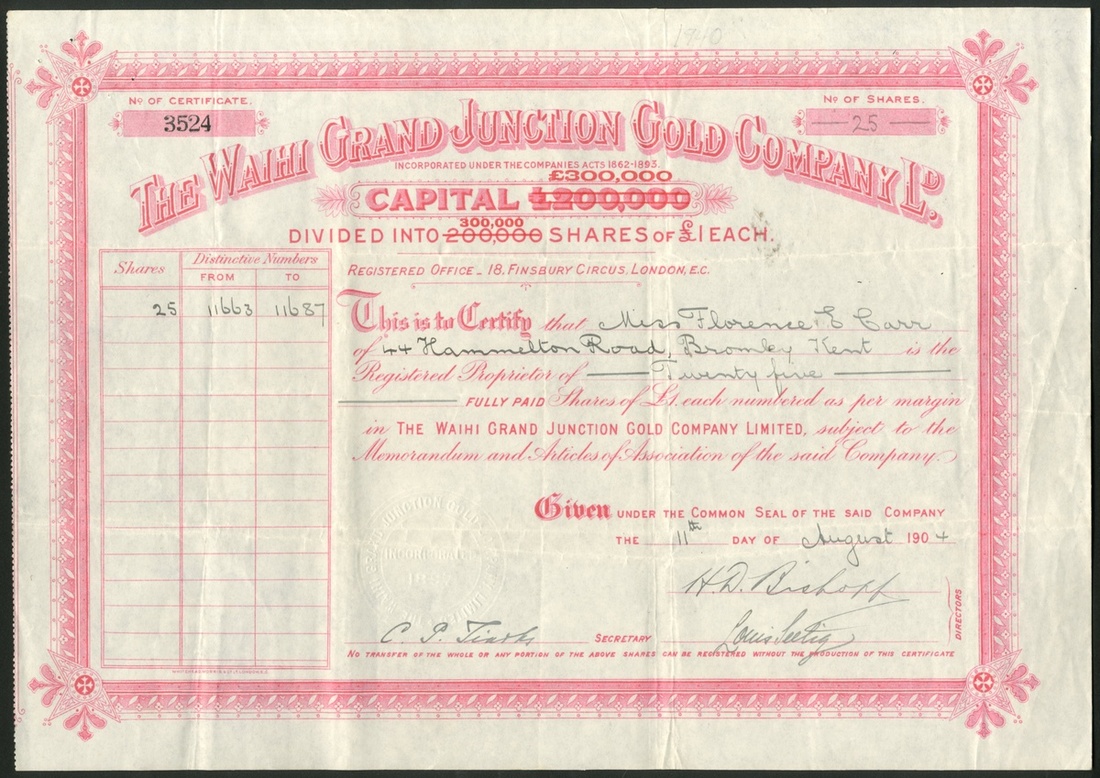 1910
No OF CERTIFICATE.
3524
No OF SHARES.
25
THE WAIHI GRAND JUNCTION GOLD COMPANY LD.
INCORPORATED UNDER THE COMPANIES ACTS 1862-1893.
£300,000
CAPITAL £200,000
300,000
DIVIDED INTO 200,000 SHARES OF £1 EACH.
REGISTERED OFFICE - 18, FINSBURY CIRCUS, LONDON, E.C.
Shares Distinctive Numbers
FROM TO
25 11663 11687
This is to Certify that Miss Florence E Carr
of 44 Hammelton Road, Bromley Kent is the
Registered Proprietor of Twenty five
FULLY PAID Shares of £1 each numbered as per margin
in THE WAIHI GRAND JUNCTION GOLD COMPANY LIMITED, subject to the
Memorandum and Articles of Association of the said Company.
Given UNDER THE COMMON SEAL OF THE SAID COMPANY
THE 11th DAY OF August 1904
H. D. Bishopp
DIRECTORS
C. P. SECRETARY Louis
NO TRANSFER OF THE WHOLE OR ANY PORTION OF THE ABOVE SHARES CAN BE REGISTERED WITHOUT THE PRODUCTION OF THIS CERTIFICATE
JUNCTION GOLD
INCORPORATED